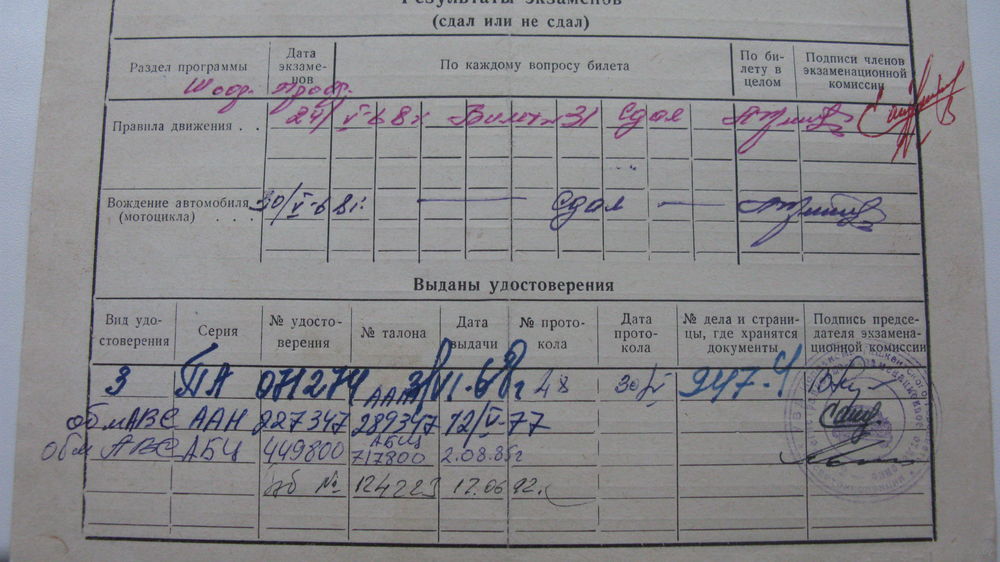 Результаты экзаменов
(сдал или не сдал)
Раздел программы
Дата экзаме-
нов
По каждому вопросу билета
По би-
лету в
целом
Подписи членов
экзаменационной
комиссии
Правила движения . . 24/V-68г Билет №31 Сдал
Вождение автомобиля 30/V-68г. Сдал
(мотоцикла) . . . .
Выданы удостоверения
Вид удо-
стоверения
Серия
№ удосто-
верения
№ талона
Дата
выдачи
№ прото-
кола
Дата
прото-
кола
№ дела и страни-
цы, где хранятся
документы
Подпись предсе-
дателя экзамена-
ционной комиссии
3 ПА 071274 48 30/V 947-4
обм АВС ААН 227347 289347 12/V-77
обм АВС АБЦ 449800 АБЦ 717800 2.08.85г
№ 124223 12.06.92.